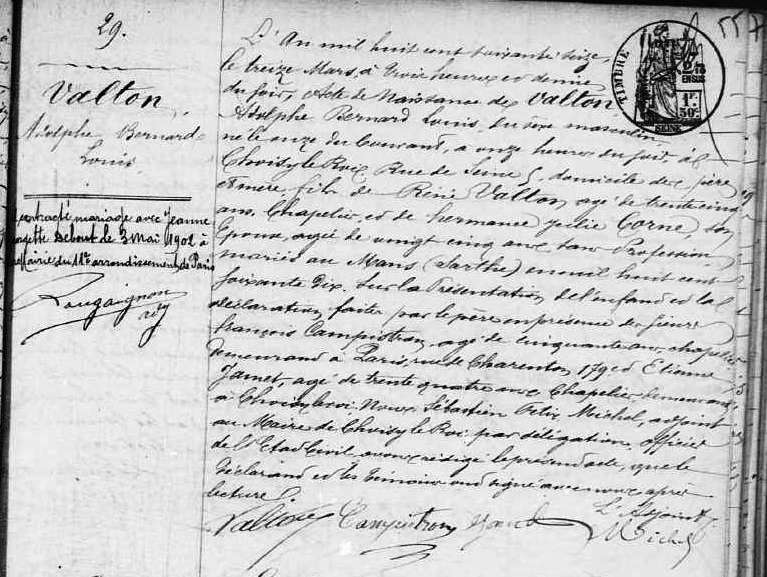 29.
Valton
Adolphe Bernard
Louis
contracté mariage avec Jeanne
le 3 Mai 1902 à
Mairie du 11e arrondissement de Paris
557
TIMBRE
EN SUS
1F
50c
SEINE
L'An mil huit cent soixante seize,
le treize Mars, à trois heures et demie
du soir, Acte de Naissance de Valton
Adolphe Bernard Louis, du sexe masculin,
né le onze du Courant, à onze heures du soir, à
Choisy le Roi, Rue de Seine 5, domicile de ses père
et mère, fils de René Valton, agé de trente cinq
ans, Chapelier, et de hermance julie Corne, son
Epouse, agée de vingt cinq ans sans Profession,
mariés au Mans (Sarthe) en mil huit cent
soixante Dix. Sur la Présentation de l'enfant et la
déclaration faite par le père en présence de sieurs
françois Campistron, agé de cinquante ans, chapelier
demeurant à Paris, rue de Charenton 179 et Etienne
Jamet, agé de trente quatre ans Chapelier, demeurant
à Choisy le roi. Nous, Sébastien Michel, adjoint
au Maire de Choisy le Roi par délégation, officier
de l'Etat Civil avons rédigé le présent acte, que le
Déclarant et les témoins ont signé avec nous après
lecture
L'Adjoint
Valton Campistron Jamet Michel